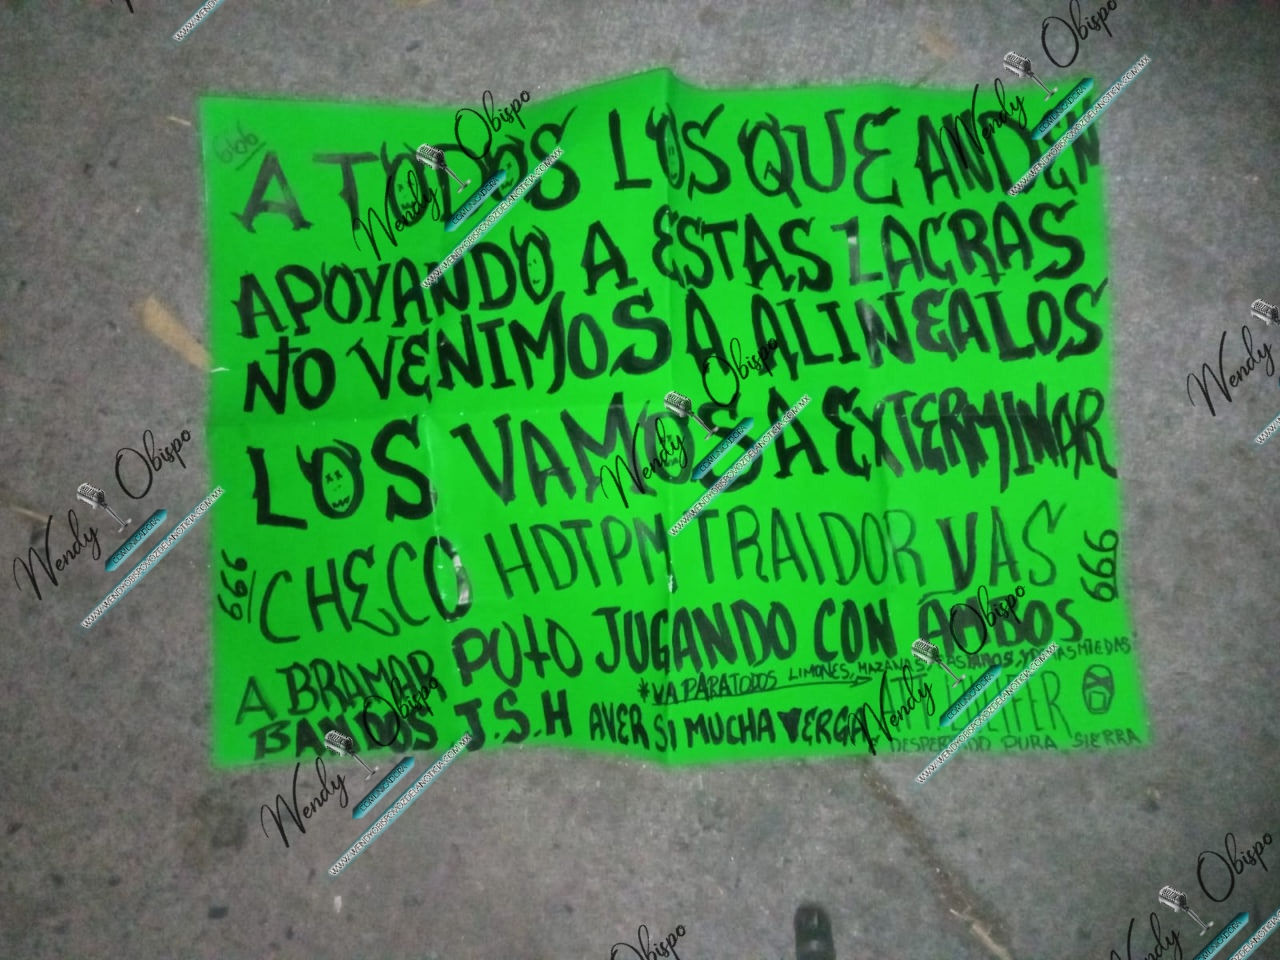 666
A TODOS LOS QUE ANDEN
APOYANDO A ESTAS LACRAS
NO VENIMOS A ALINEALOS
LOS VAMOS A EXTERMINAR
666
CHECO HDTPM TRAIDOR VAS
666
A BRAMAR PUTO JUGANDO CON AMBOS
BANDOS J.S.H AVER SI MUCHA VERGA
*VA PARA TODOS LIMONES, MAZANAS,
ATT LUCIFER
DESPERTANDO PURA SIERRA
Wendy Obispo
COMUNICADORA
WWW.WENDYOBISPOVOZDELANOTICIA.COM.MX
Wendy Obispo
COMUNICADORA
WWW.WENDYOBISPOVOZDELANOTICIA.COM.MX
Wendy Obispo
COMUNICADORA
WWW.WENDYOBISPOVOZDELANOTICIA.COM.MX
Wendy Obispo
COMUNICADORA
WWW.WENDYOBISPOVOZDELANOTICIA.COM.MX
Wendy Obispo
COMUNICADORA
WWW.WENDYOBISPOVOZDELANOTICIA.COM.MX
Wendy Obispo
COMUNICADORA
WWW.WENDYOBISPOVOZDELANOTICIA.COM.MX
Wendy
Obispo
Wendy Obispo
COMUNICADORA